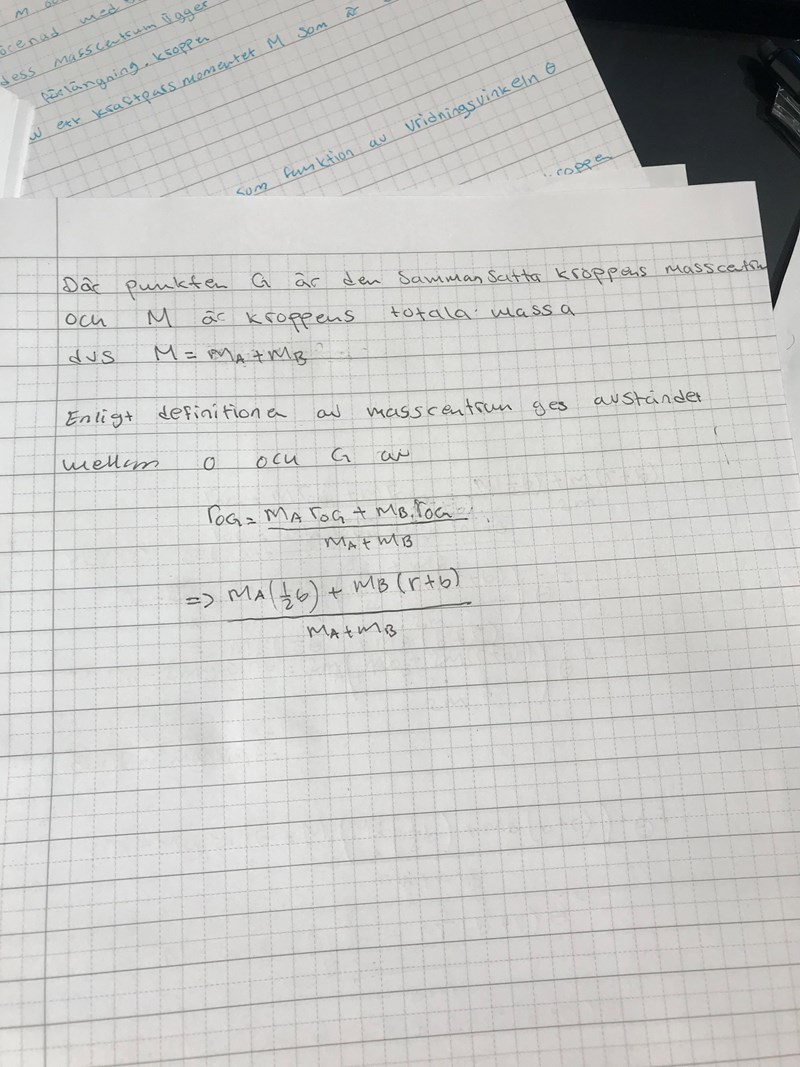 m
med
dess masscentrum ligger
förlängning. kroppen
av ett kraftparsmomentet M som är
som funktion av vridningsvinkeln θ
kroppen
Där punkten G är den sammansatta kroppens masscentru
och M är kroppens totala massa
dvs M = mA + mB
Enligt definitionen av masscentrum ges avståndet
mellan O och G av
rOG = mA rOG + mB rOG
mA + mB
=> mA(1/2 b) + mB (r+b)
mA + mB